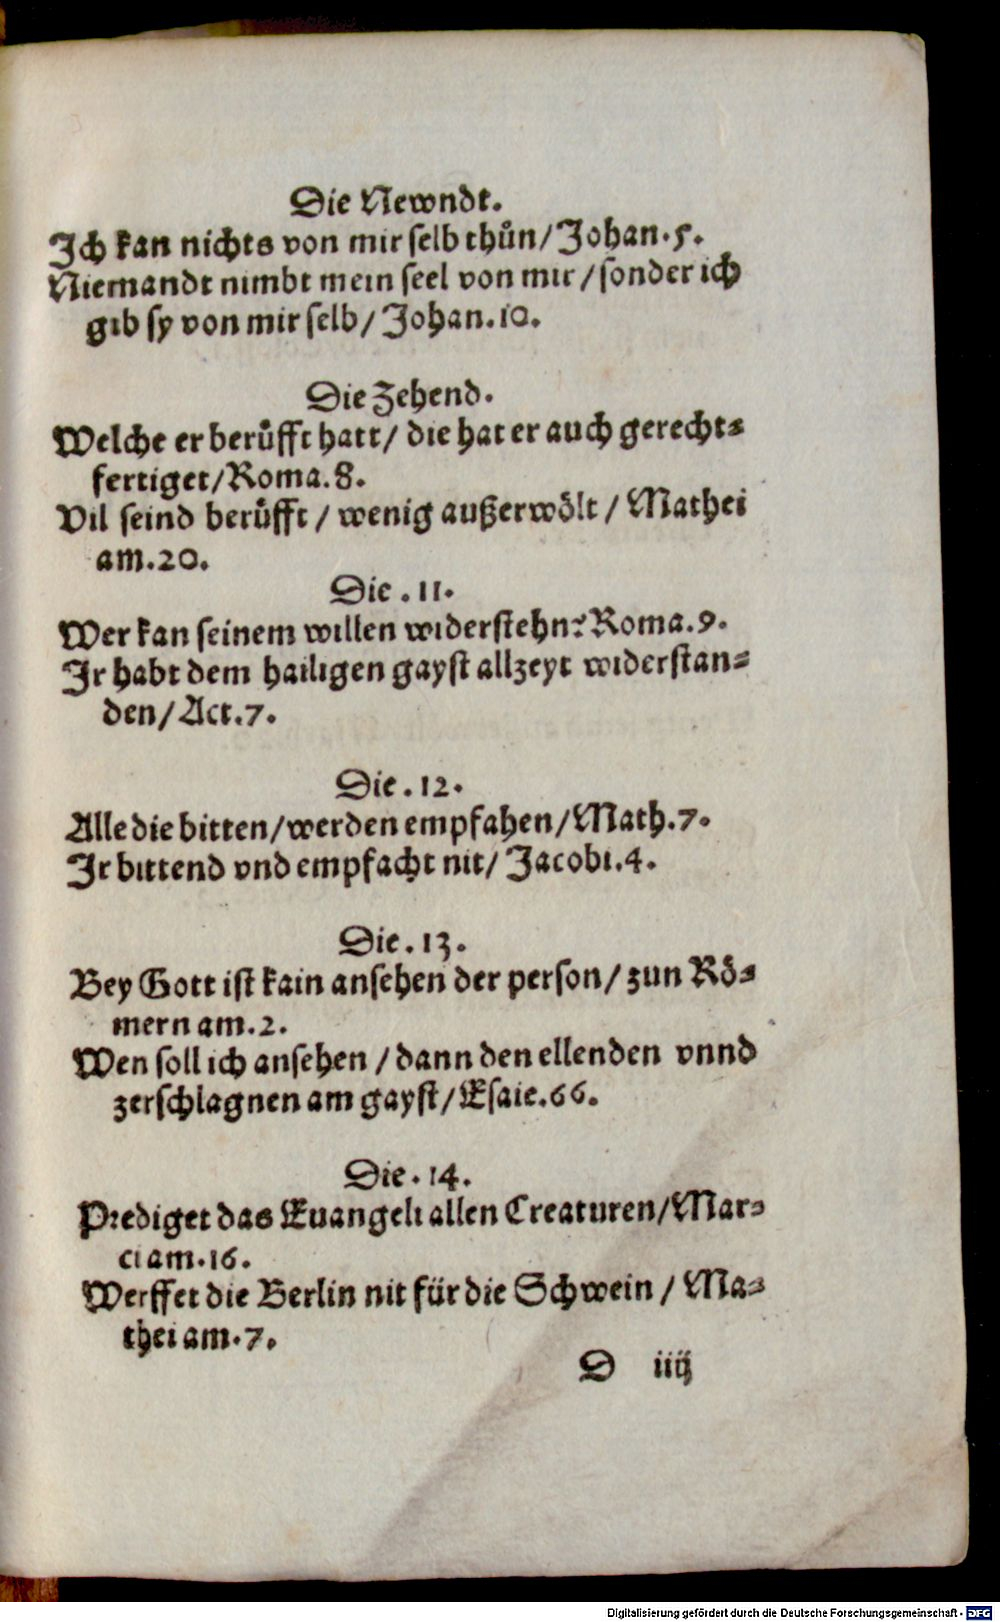 Die Newndt.
Ich kan nichts von mir selb thůn/ Johan.5.
Niemandt nimbt mein seel von mir / sonder ich
gib sy von mir selb/ Johan.10.
Die Zehend.
Welche er berůfft hatt/ die hat er auch gerecht⸗
fertiget/ Roma.8.
Vil seind berůfft / wenig außerwölt / Mathei
am.20.
Die .11.
Wer kan seinem willen widerstehn? Roma.9.
Ir habt dem hailigen gayst allzeyt widerstan⸗
den/ Act.7.
Die .12.
Alle die bitten/ werden empfahen/ Math.7.
Ir bittend vnd empfacht nit/ Jacobi.4.
Die .13.
Bey Gott ist kain ansehen der person/ zun Rö⸗
mern am.2.
Wen soll ich ansehen / dann den ellenden vnnd
zerschlagnen am gayst/ Esaie.66.
Die .14.
Prediget das Euangeli allen Creaturen/ Mar⸗
ci am.16.
Werffet die Berlin nit für die Schwein / Ma⸗
thei am.7.
D iiij
Digitalisierung gefördert durch die Deutsche Forschungsgemeinschaft - DFG